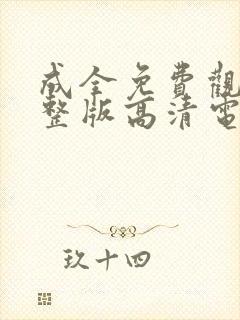 成全免費觀
整版高清電
玖十四